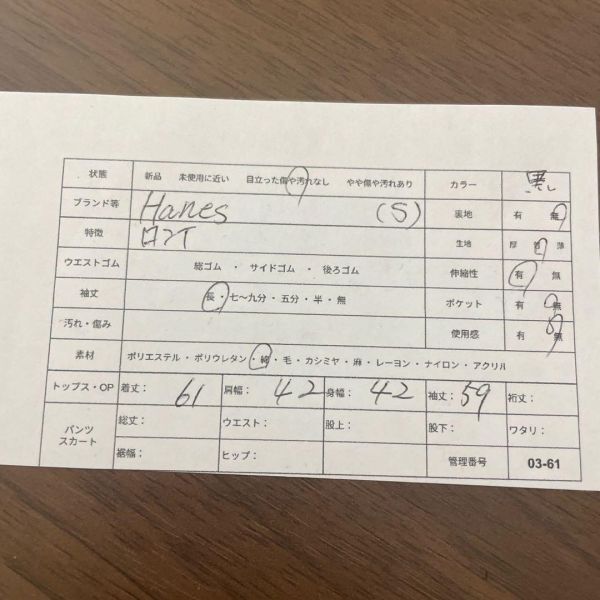 状態 新品 未使用に近い 目立った傷や汚れなし やや傷や汚れあり カラー 黒
ブランド等 Hanes (S) 裏地 有 無
特徴 ロンT 生地 厚 普 薄
ウエストゴム 総ゴム ・ サイドゴム ・ 後ろゴム 伸縮性 有 無
袖丈 長・七〜九分・五分・半・無 ポケット 有 無
汚れ・傷み 使用感 有 無
素材 ポリエステル・ポリウレタン・綿・毛・カシミヤ・麻・レーヨン・ナイロン・アクリル
トップス・OP 着丈： 61 肩幅： 42 身幅： 42 袖丈： 59 裄丈：
パンツ スカート 総丈： ウエスト： 股上： 股下： ワタリ：
裾幅： ヒップ： 管理番号 03-61